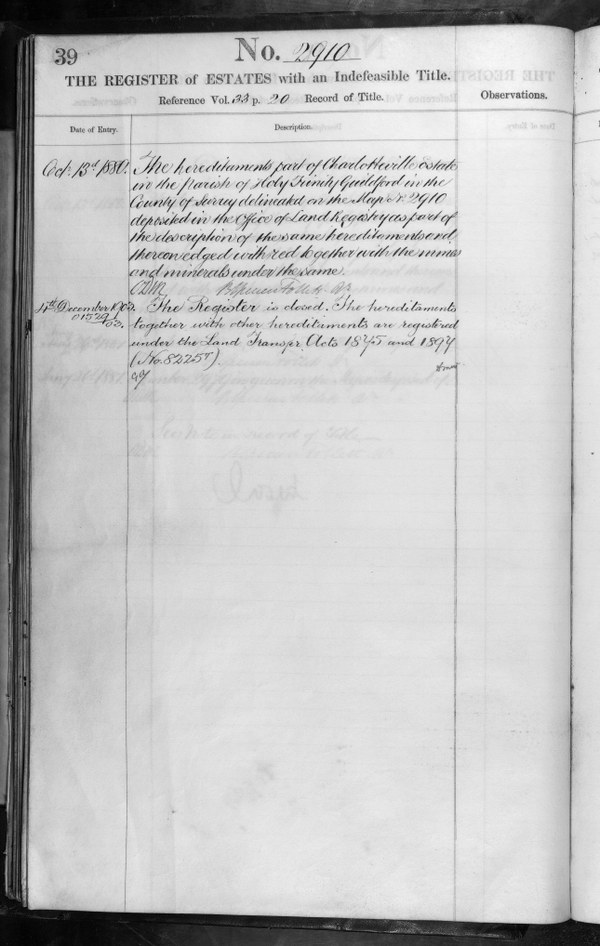 39
No. 2910
THE REGISTER of ESTATES with an Indefeasible Title.
Reference Vol. 33 p. 20 Record of Title.
Observations.
Date of Entry.
Description.
Oct. 13th 1880. The hereditaments part of Charlotteville estate
in the Parish of Holy Trinity Guildford in the
County of Surrey delineated on the Map No. 2910
deposited in the Office of Land Registry as part of
the description of the same hereditaments and
thereon edged with red together with the mines
and minerals under the same.
B Spencer Follett
11th December 1903. The Register is closed. The hereditaments
together with other hereditaments are registered
under the Land Transfer Acts 1875 and 1897
(No. 82257)